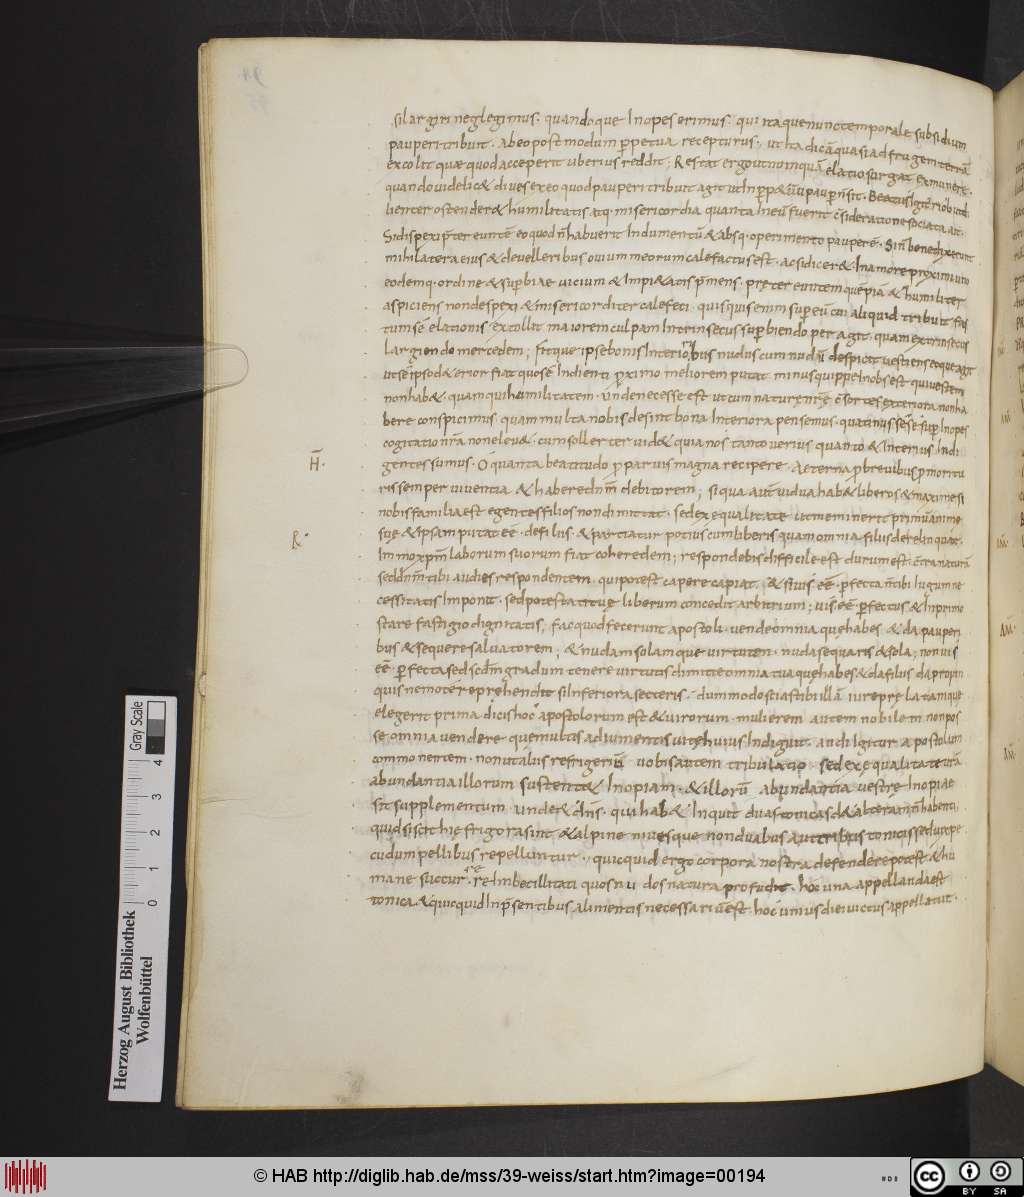 si largiri neglegimus. quandoque Inopes erimus. qui itaque nunc temporale subsidium
pauperi tribuit. ab eo postmodum ꝑpetua recepturus., ut ita dicā quasi ad frugem terrā
excolit quæ quod acceperit uberius reddit; Restat ergo ut nūquā elatio surgat ex munere.
quando videlic& dives ex eo quod pauperi tribuit agit ut In ꝑp&uū pauꝑ ñ sit. Beatus Igit̄ iob
lienter ostender& humilitatis atq· misericordia quanta In eū fuerit c̄sideratione sociata ait.
Si dispexi p̄tereuntē eo quod ñ habuerit Indumentū & absq· operimento pauperē. Si ñ benedixerunt
mihi latera eius & de velleribus ovium mearum calefactus est. ac si dicer&. In amore proximi uno
eodemq· ordine & suꝑbiae vicium & Impi&atis p̄mens. pręter euntem quēpiā & humiliter
aspiciens non despexi & misericorditer calefeci. quisquis enim super eū cui aliquid tribuit fas
tum sē elationis excollit maiorem culpam Intrinsecus suꝑbiendo per agit. quam extrinsecus
largiendo mercedem; fitque ipse bonis Interioribus nudus cum nudū despicit vestiens eoque agit
ut sē ipso d&erior fiat quo sē Indigenti ꝓximo meliorem putat. minus quippe Inobs est qui vestem
non hab&. quam qui humilitatem. Unde necesse est ut cum naturę nr̄ę c̄sortes exteriora non ha
bere conspicimus quam multa nobis desint bona Interiora pensemus. quatinus sese sup̄ Inopes
cogitatio nr̄a non elev&. cum sollerter vid& quia nos tanto verius quanto & Interius Indi
H̄.
gentes sumus. O quanta beatitudo ꝓ parvis magna recipere. Aeterna ꝓ brevibus ꝓ moritu
ris semper viventia & habere dn̄m debitorem; si qua aut̄ vidua hab& liberos & maxime si
nobis familia est egentes filios non dimittat. sed ex equalitate ut meminerit primū animę
suę & ipsam putat eē. de filiis. & partiatur potius cum liberis quam omnia filius derelinquat.
R.
Immo xp̄m laborum suorum fiat coheredem; respondebis difficile est durum est. c̄tra naturā
sed dn̄m tibi audies respondentem. qui potest capere capiat. & si vis eē ꝑfecta ñ tibi Iugum ne
cessitatis Imponit. sed potestati tuę liberum concedit arbitrium; vis eē ꝑfectus & In primo
stare fastigio dignitatis; fac quod fecerunt apostoli. vende omnia quę habes & da pauperi
bus & sequere salvatorem; & nudam solamque virtutem. nuda sequaris & sola; non vis
eē ꝑfecta sed sc̄dm̄ gradum tenere virtutis dimitte omnia tua quę habes & da filiis da propin
quis nemo tē reprehendit si Inferiora secteris. dummodo scias tibi illā iure prę latam que
elegerit prima. dicis hoc apostolorum est & virorum. mulierem autem nobilem non pos
se omnia vendere. que multis adiumentis vitę huius Indiguit. audi Igitur apostolum
commonentem. non ut aliis refrigeriū vobis autem tribulatio sed ex equalitate urā
abundantia illorum sustent& Inopiam. & illorū abundantia vestrę Inopiae
sit supplementum unde & dn̄s. qui hab& Inquit duas tonicas d& alterā ñ habenti,
quid si scithię frigora sint & alpine nives que non duabus aut tribus tonicis sed vix pe
cudum pellibus repelluntur. quicquid ergo corpora nostra defendere potest & hu
mane succurrere Imbecillitati quos nudos natura profudit. hoc una appellanda est
tonica. & quicquid In p̄sentibus alimentis necessariū est. hoc unius diei victus appellatur.
Herzog August Bibliothek
Wolfenbüttel
0 1 2 3 4
Gray Scale
© HAB http://diglib.hab.de/mss/39-weiss/start.htm?image=00194
cc BY SA